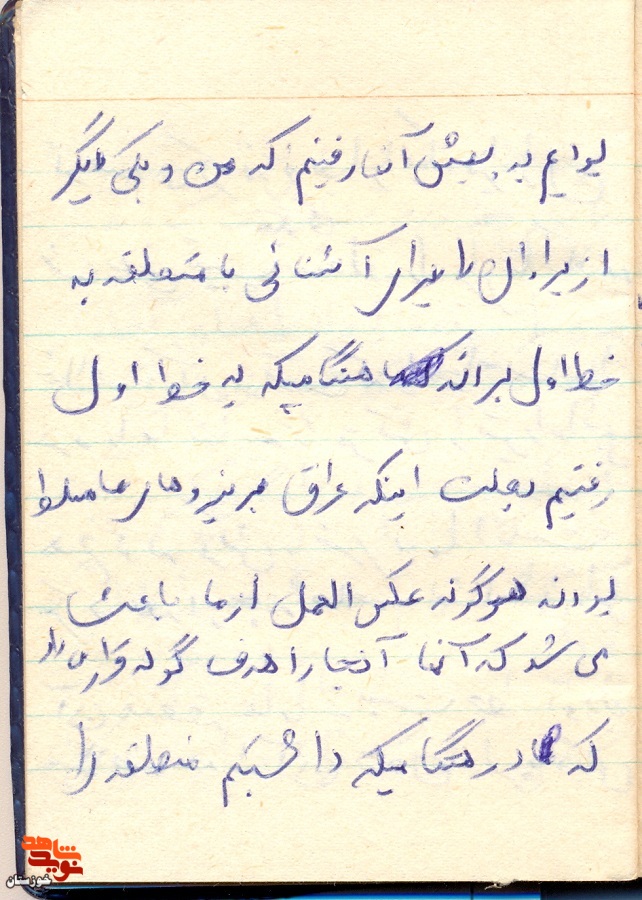 بودیم به پیش آنها رفتیم که من و یکی دیگر
از برادران برای آشنائی با منطقه به
خط اول براند هنگامیکه به خط اول
رفتیم بعلت اینکه عراق بر نیروهای ما مسلط
بودند هرگونه عکس العمل از ما باعث
می شد که آنها آنجا را هدف گوله قرار داد
که در هنگامیکه داشتیم منطقه را
نوید شاهد
خوزستان